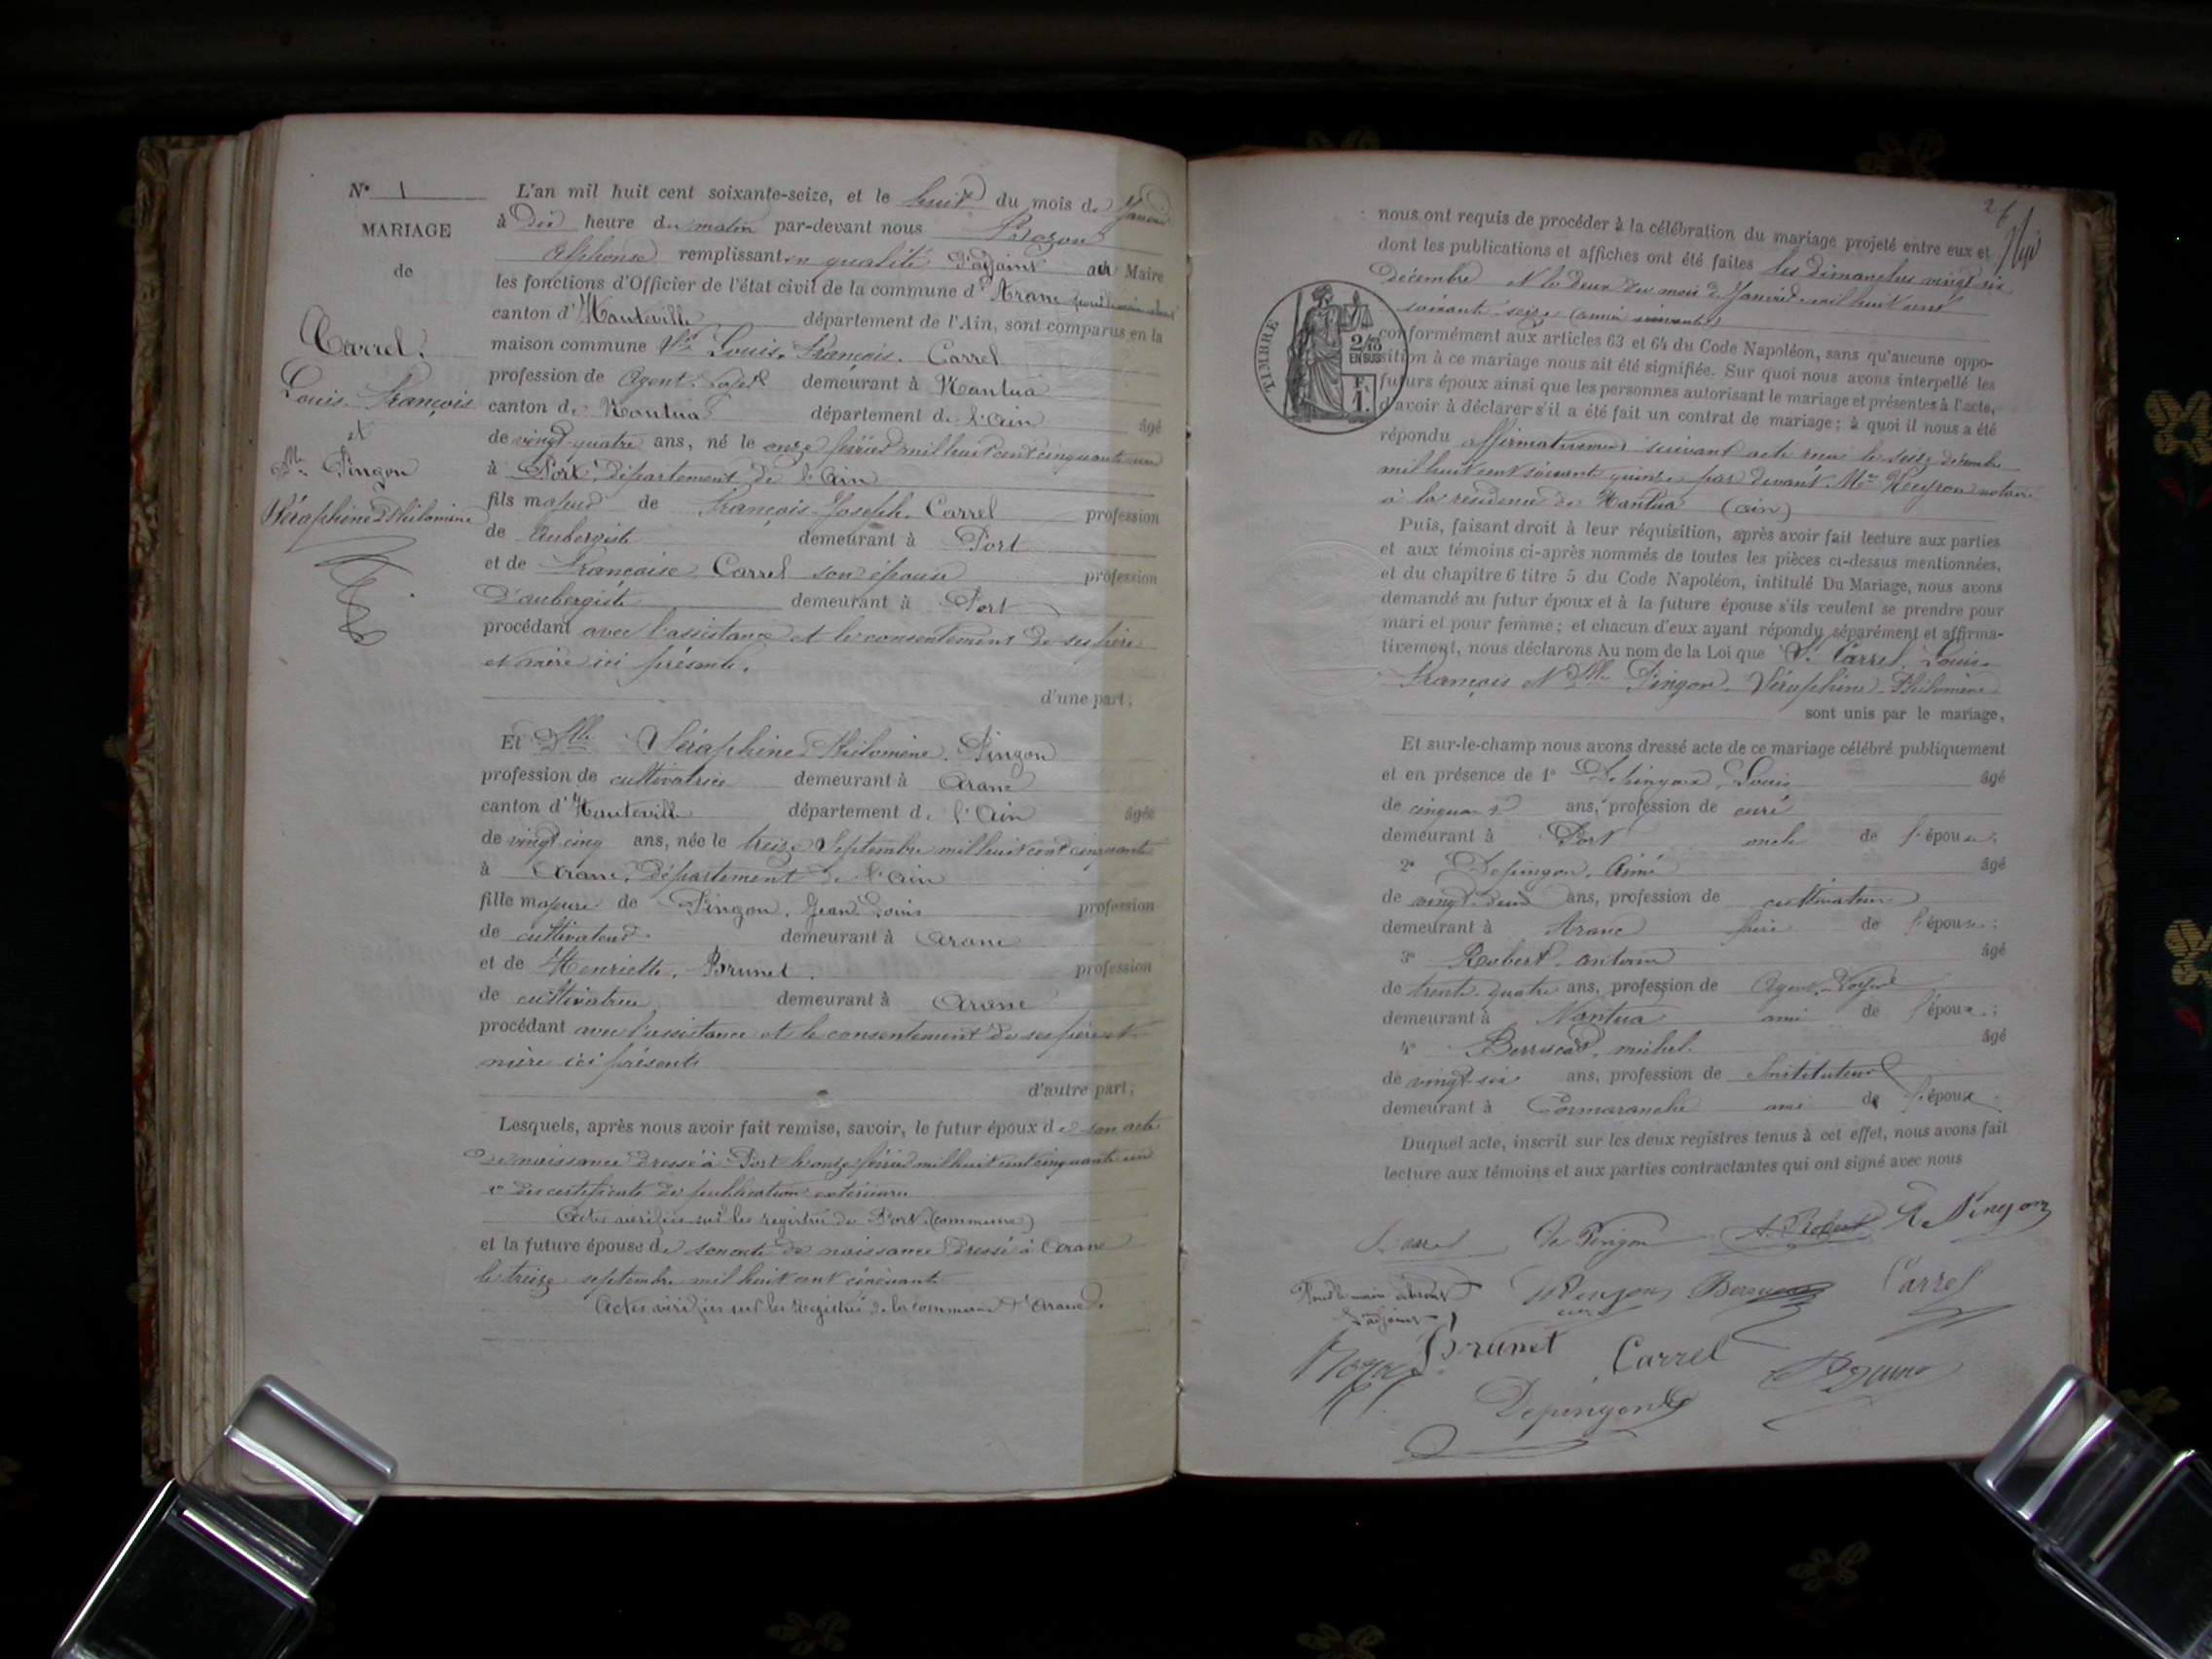 N° 1
MARIAGE
de
Carrel
Louis François
et
Dlle Pingon
Séraphine Philomène
L'an mil huit cent soixante-seize, et le huit du mois de Janvier
à dix heure du matin par-devant nous
Alphonse remplissant en qualité d'adjoint au Maire
les fonctions d'Officier de l'état civil de la commune d'Aranc
canton d'Hauteville département de l'Ain, sont comparus en la
maison commune Sr Louis François Carrel
profession de Agent-Voyer demeurant à Nantua
canton de Nantua département de l'Ain âgé
de vingt-quatre ans, né le onze février mil huit cent cinquante un
à Port, département de l'Ain
fils majeur de François Joseph Carrel profession
de Aubergiste demeurant à Port
et de Françoise Carrel son épouse profession
d'aubergiste demeurant à Port
procédant avec l'assistance et le consentement de ses père
et mère ici présents.
d'une part;
Et Dlle Séraphine Philomène Pingon
profession de cultivatrice demeurant à Aranc
canton d'Hauteville département de l'Ain âgée
de vingt-cinq ans, née le treize Septembre mil huit cent cinquante
à Aranc, département de l'Ain
fille majeure de Pingon, Jean Louis profession
de cultivateur demeurant à Aranc
et de Henriette Brunet profession
de cultivatrice demeurant à Aranc
procédant avec l'assistance et le consentement de ses père et
mère ici présents
d'autre part;
Lesquels, après nous avoir fait remise, savoir, le futur époux de son acte
de naissance dressé à Port le onze février mil huit cent cinquante un
des certificats de publication extérieure
Actes vérifiés sur les registres de Port (commune)
et la future épouse de son acte de naissance dressé à Aranc
le treize septembre mil huit cent cinquante
Actes vérifiés sur les registres de la commune d'Aranc.
nous ont requis de procéder à la célébration du mariage projeté entre eux et
dont les publications et affiches ont été faites les dimanches vingt six
décembre et le deux du mois de Janvier mil huit cent
soixante-seize
TIMBRE
2/10
EN SUS
1 F.
conformément aux articles 63 et 64 du Code Napoléon, sans qu'aucune oppo-
sition à ce mariage nous ait été signifiée. Sur quoi nous avons interpellé les
futurs époux ainsi que les personnes autorisant le mariage et présentes à l'acte,
d'avoir à déclarer s'il a été fait un contrat de mariage; à quoi il nous a été
répondu affirmativement suivant acte reçu le seize décembre
mil huit cent soixante quinze par devant Me notaire
à la résidence de Nantua (Ain)
Puis, faisant droit à leur réquisition, après avoir fait lecture aux parties
et aux témoins ci-après nommés de toutes les pièces ci-dessus mentionnées,
et du chapitre 6 titre 5 du Code Napoléon, intitulé Du Mariage, nous avons
demandé au futur époux et à la future épouse s'ils veulent se prendre pour
mari et pour femme; et chacun d'eux ayant répondu séparément et affirma-
tivement, nous déclarons Au nom de la Loi que Sr Carrel Louis
François et Dlle Pingon Séraphine Philomène
sont unis par le mariage,
Et sur-le-champ nous avons dressé acte de ce mariage célébré publiquement
et en présence de 1° Depingon, Louis âgé
de ans, profession de curé
demeurant à Port oncle de l'épouse;
2° Depingon, Aimé âgé
de vingt-deux ans, profession de cultivateur
demeurant à Aranc frère de l'épouse;
3° Robert, Antoine âgé
de trente-quatre ans, profession de Agent-Voyer
demeurant à Nantua ami de l'époux;
4° michel âgé
de vingt-six ans, profession de Instituteur
demeurant à Cormaranche ami de l'époux.
Duquel acte, inscrit sur les deux registres tenus à cet effet, nous avons fait
lecture aux témoins et aux parties contractantes qui ont signé avec nous
De Pingon A. Robert
Pour le maire absent Carrel
L'adjoint
Brunet Carrel
Depingon